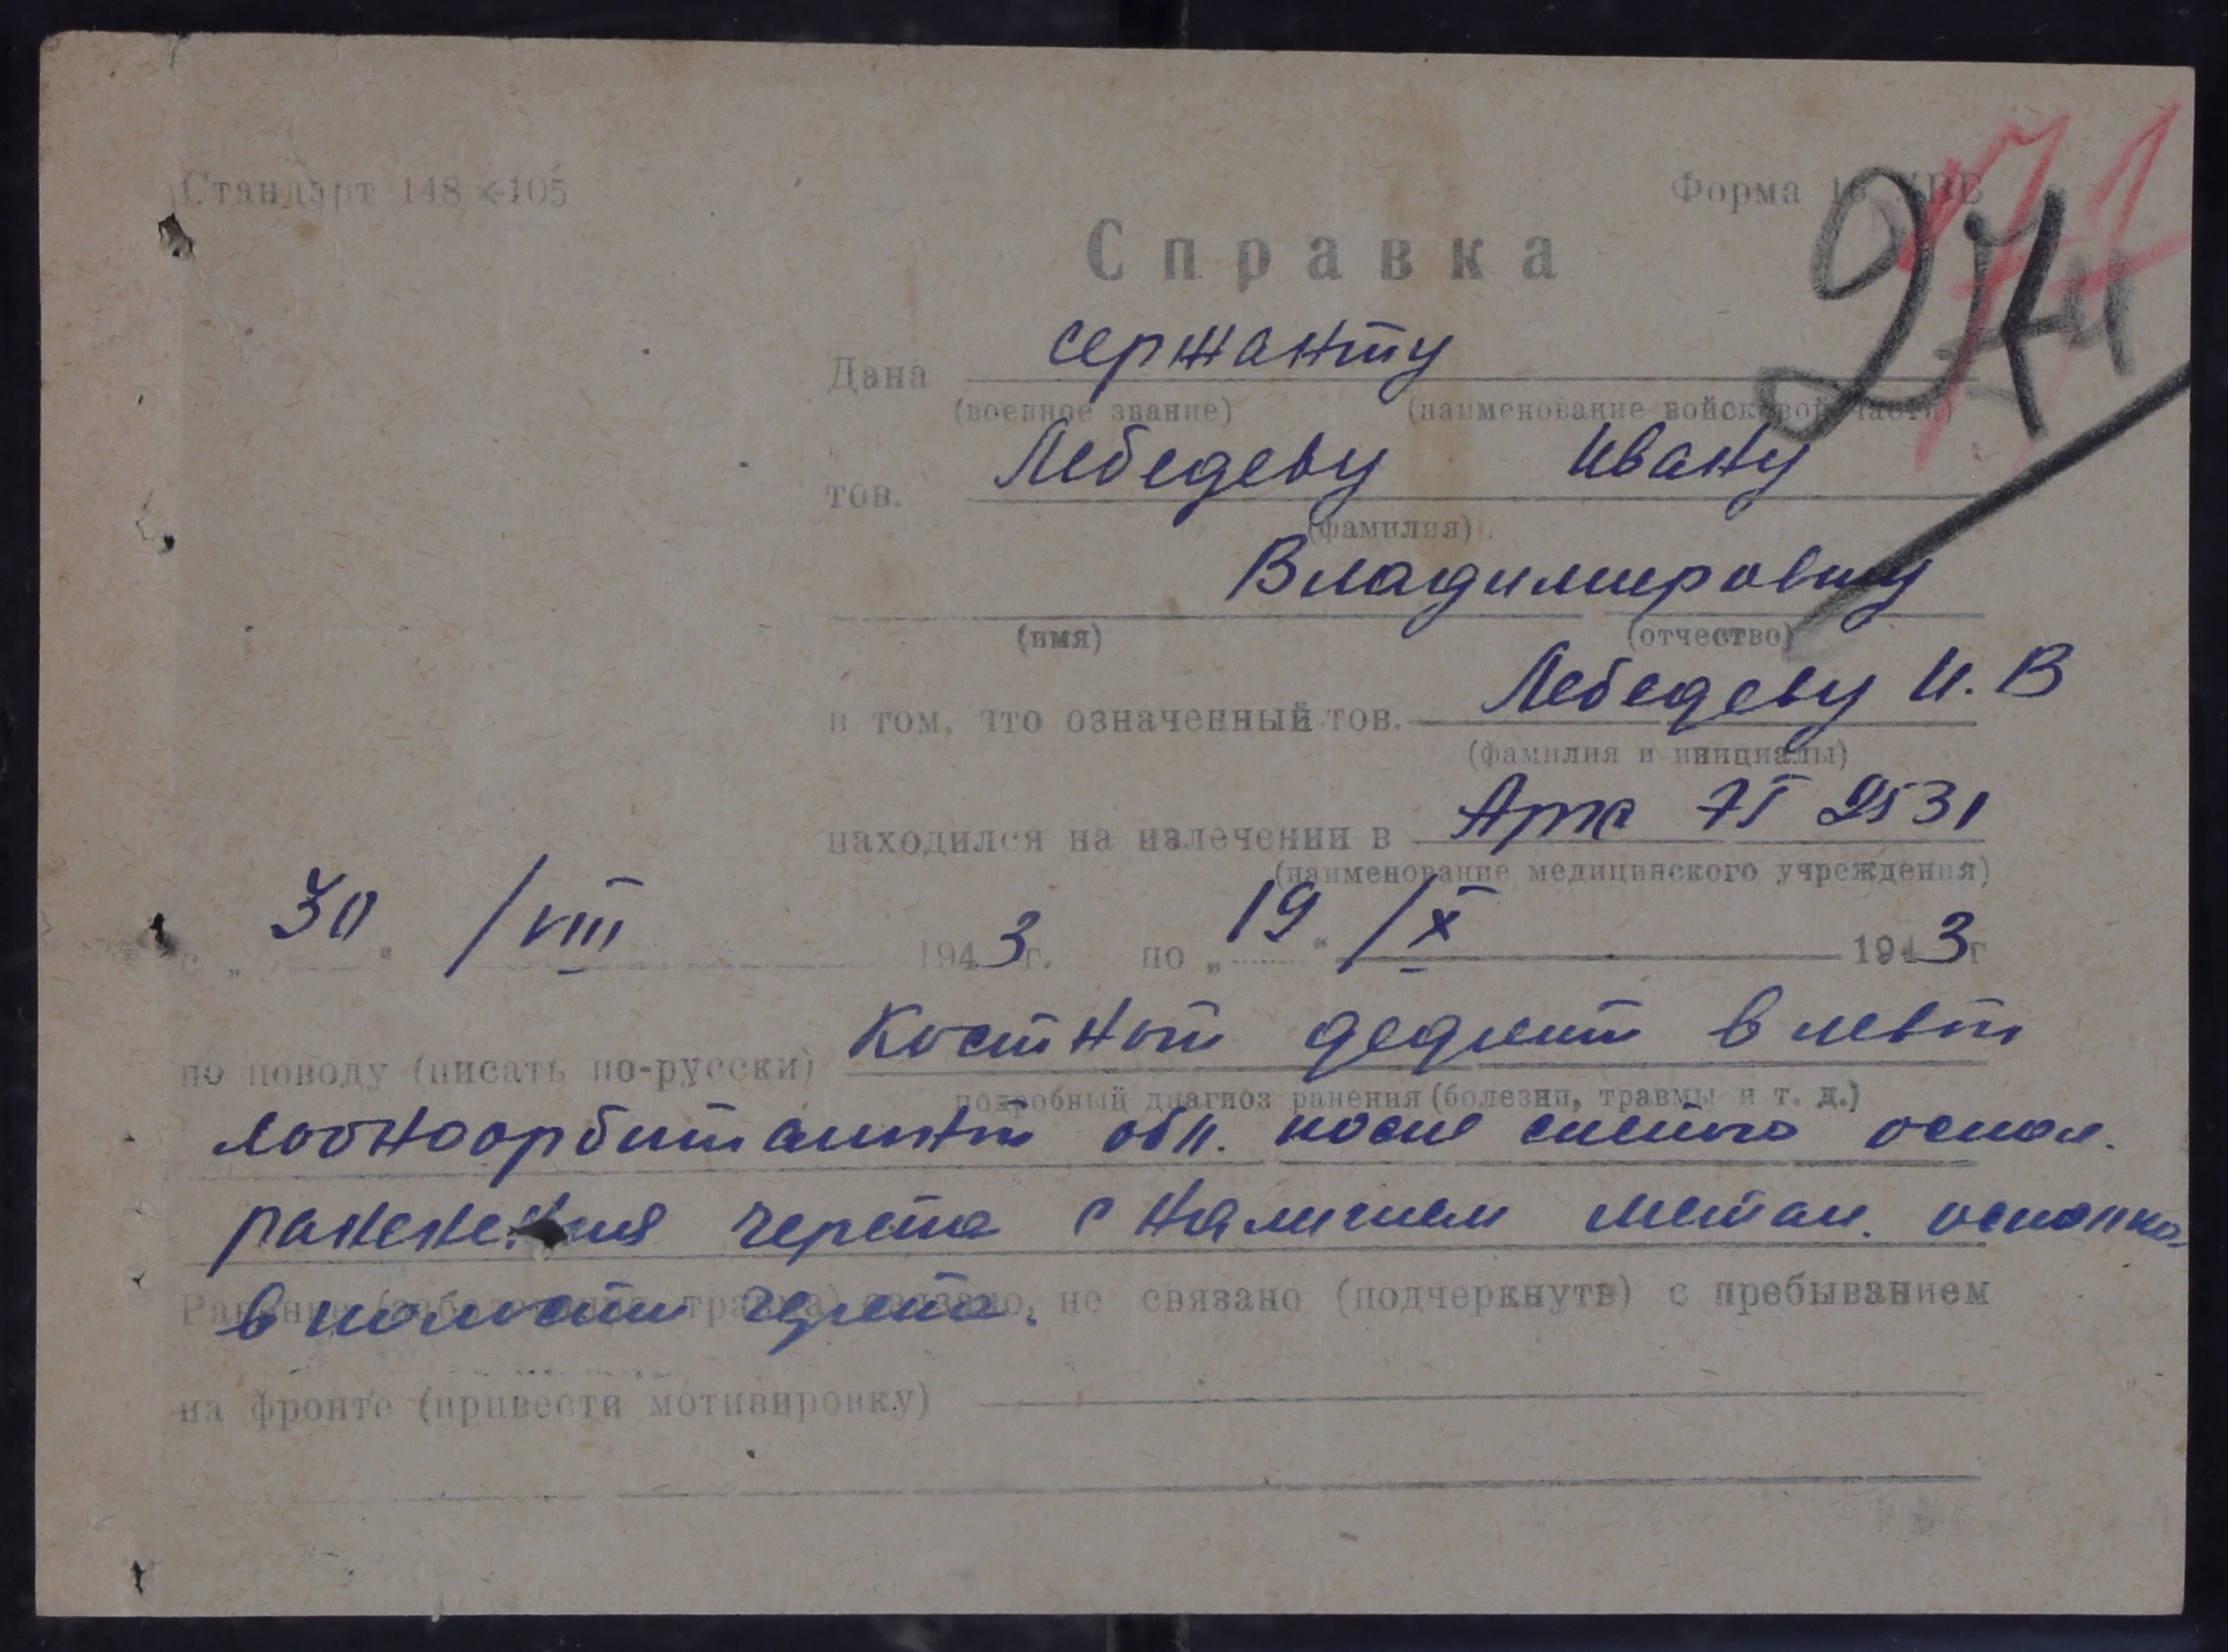 Стандарт 148 ×105
Форма 16 УВВ
Справка
Дана сержанту
(военное звание) (наименование войсковой части)
тов. Лебедеву Ивану
(фамилия)
Владимировичу
(имя) (отчество)
в том, что означенный тов. Лебедеву И. В
(фамилия и инициалы)
находился на излечении в 2531
(наименование медицинского учреждения)
с „30“ /VIII 1943 г. по „19“ /X 1943 г
по поводу (писать по-русски) Костный дефект в левой
подробный диагноз ранения (болезни, травмы и т. д.)
лобноорбитальной обл. после слепого оскол.
ранения черепа с наличием метал. осколка
Ранение (заболевание, травма) связано, не связано (подчеркнуть) с пребыванием
в полости черепа.
на фронте (привести мотивировку)